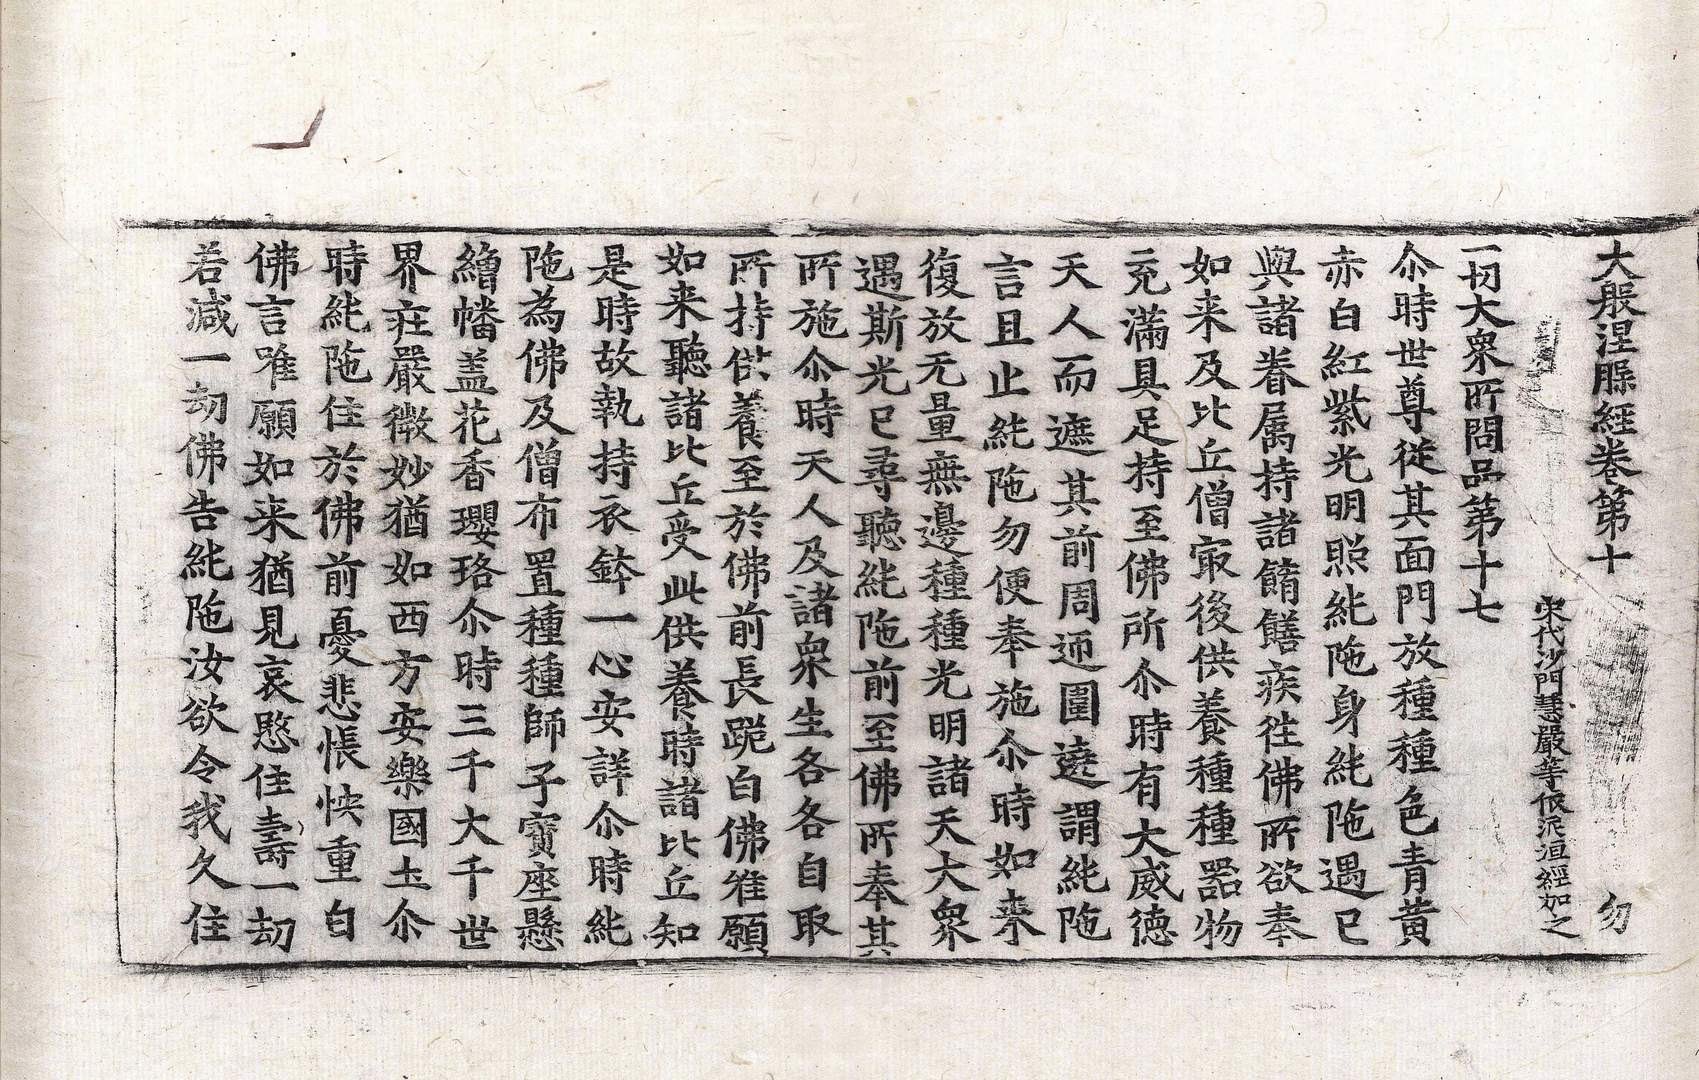 大般涅槃經卷第十 勿
宋代沙門慧嚴等依泥洹經加之
一切大衆所問品第十七
尒時世尊從其面門放種種色青黃
赤白紅紫光明照純陁身純陁遇已
與諸眷屬持諸餚饍疾徃佛所欲奉
如来及比丘僧㝡後供養種種器物
充滿具足持至佛所尒時有大威德
天人而遮其前周迊圍遶謂純陁
言且止純陁勿便奉施尒時如来
復放无量無邊種種光明諸天大衆
遇斯光已尋聽純陁前至佛所奉其
所施尒時天人及諸衆生各各自取
所持供養至於佛前長跪白佛唯願
如来聽諸比丘受此供養時諸比丘知
是時故執持衣鉢一心安詳尒時純
陁為佛及僧布置種種師子寶座懸
繒幡盖花香瓔珞尒時三千大千世
界㽵嚴微妙猶如西方安樂國土尒
時純陁住於佛前憂悲悵怏重白
佛言唯願如来猶見哀愍住壽一劫
若減一劫佛告純陁汝欲令我久住